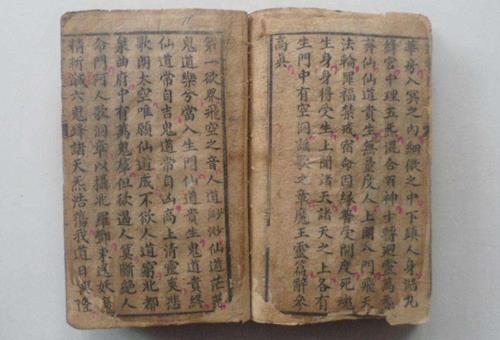 華房入冥之內細微之中下鎮人身泥丸
絳宮中理五炁混合百神十轉迴靈萬炁
齊仙仙道貴生無量度人上開八門飛天
法輪罪福禁戒宿命因緣普受開度死魂
生身身得受生上聞諸天諸天之上各有
生門中有空洞謠歌之章魔王靈篇辭參
高真
第一欲界飛空之音人道渺渺仙道茫茫
鬼道樂兮當人生門仙道貴生鬼道貴終
仙道常自吉鬼道常自凶高上清靈爽悲
歌朗太空唯願仙道成不欲人道窮北都
泉曲府中有萬鬼羣但欲遏人算斷絕人
命門阿人歌洞章以攝北羅酆束送妖魔
精斬馘六鬼鋒諸天炁浩蕩我道日興隆